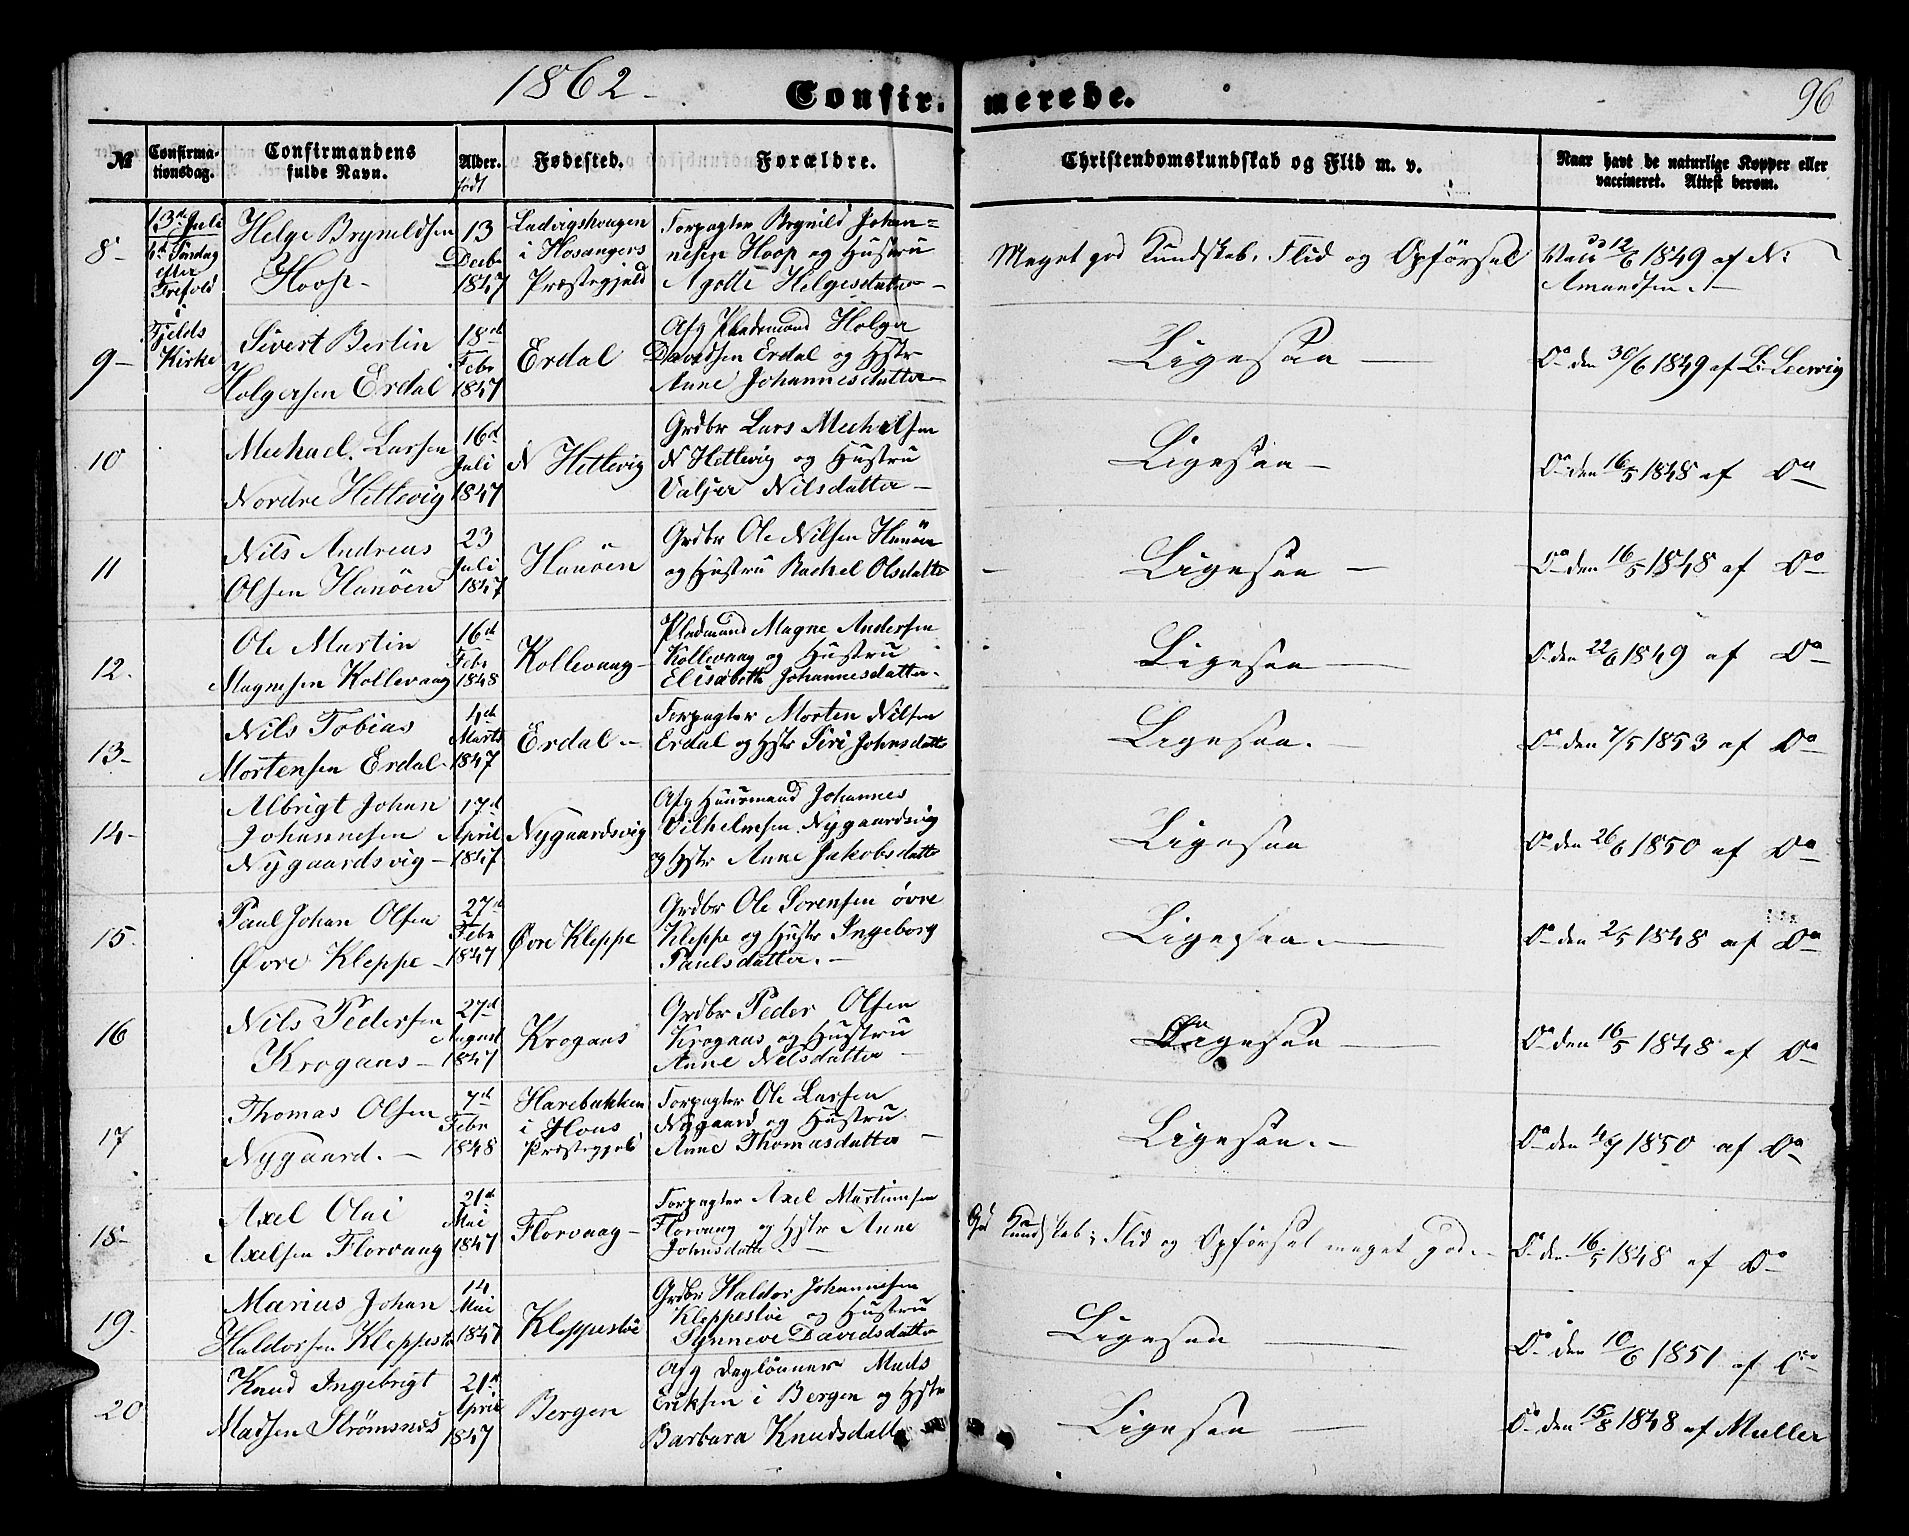 1862.
Confir-
merede.
96
№ Confirma- Confirmandens Alder. Fødested. Forældre. Christendomskundskab og Flid m. v. Naar havt de naturlige Kopper eller
tionsdag. fulde Navn. født vaccineret. Attest derom.
13de Juli
6te Søndag
efter
Trefold
i
Fjelds
Kirke
8 - Helge Brynildsen 13 Ludvigshougen Forpagter Brynild Johan=
i Hosangers nesen Hoop og Hustru Meget god Kundskab, Flid og Opførsel Vacc 12/6 1849 af N:
Hoop - Decbr 1847 Præstegjeld Agotte Helgesdatter - Amundsen. -
9 - Sivert Bertin 18de Erdal Afg Pladsmand Holger
Febr Davidsen Erdal og Hstr Ligesaa - Do den 30/6 1849 af L: Leewig
Holgersen Erdal 1847 Anne Johannesdatter -
10 Michael Larsen 16d N Hettevig Grdbr Lars Michelsen
Juli N Hettevig og Hustru Ligesaa - Do den 16/5 1848 af Do
Nordre Hettevig 1847 Nilsdatter -
11 Nils Andreas 23 Hanöen Grdbr Ole Nilsen Hanöen
Juli og Hustru Rachel Olsdatter Ligesaa - Do den 16/5 1848 af Do
Olsen Hanöen 1847
12. Ole Martin 16d Kollevaag - Pladsmand Magne Andersen
Febr Kollevaag og Hustru Ligesaa - Do den 22/6 1849 af Do
Magnesen Kollevaag 1848 Elisabeth Johannesdatter.
13 - Nils Tobias 4de Erdal - Forpagter Morten Nilsen
Marts Erdal og Hstr Siri Johnsdatter Ligesaa. - Do den 7/5 1853 af Do
Mortensen Erdal - 1847
14 - Albrigt Johan 17d Nygaardsvig Afg Huusmand Johannes
Johannesen April Vilhelmsen Nygaardsvig Ligesaa Do den 26/6 1850 af Do
Nygaardsvig - 1847 og Hstr Anne Jakobsdatter
15. Paul Johan Olsen 27d Øvre Kleppe Grdbr Ole Sorensen øvre
Febr Kleppe og Hustr Ingeborg Ligesaa. - Do den 2/5 1848 af Do
Øvre Kleppe - 1847 Paulsdatter. -
16 Nils Pedersen 27d Krogaas Grdbr Peder Olsen
August Krogaas og Hustru Ligesaa - Do den 16/5 1848 af Do
Krogaas - 1847 Anne Nilsdatter -
17 Thomas Olsen 7d Harebakken Forpagter Ole Larsen
Febr i Hous Nygaard og Hustru Ligesaa. - Do den 4/7 1850 af Do
Nygaard. - 1848 Præstegjeld Anne Thomasdatter -
18 - Axel Olai 21d Florvaag - Forpagter Axel Martinusen
Mai Florvaag og Hstr Anne God Kundskab; Flid og Opførsel meget god. - Do den 16/5 1848 af Do
Axelsen Florvaag 1847 Johnsdatter. -
19. Marius Johan 14 Kleppestöe Grdbr Haldor Johannesen
Mai Kleppestöe og Hustru Ligesaa - Do den 10/6 1851 af Do
Haldorsen Kleppestö 1847 Synneve Davidsdatter
20 Knud Ingebrigt 21d Bergen Afg Daglönner Mads
April Eriksen i Bergen og Hstr Ligesaa - Do den 15/8 1848 af Müller
Madsen Strömsnæs 1847 Barbara Knudsdatter